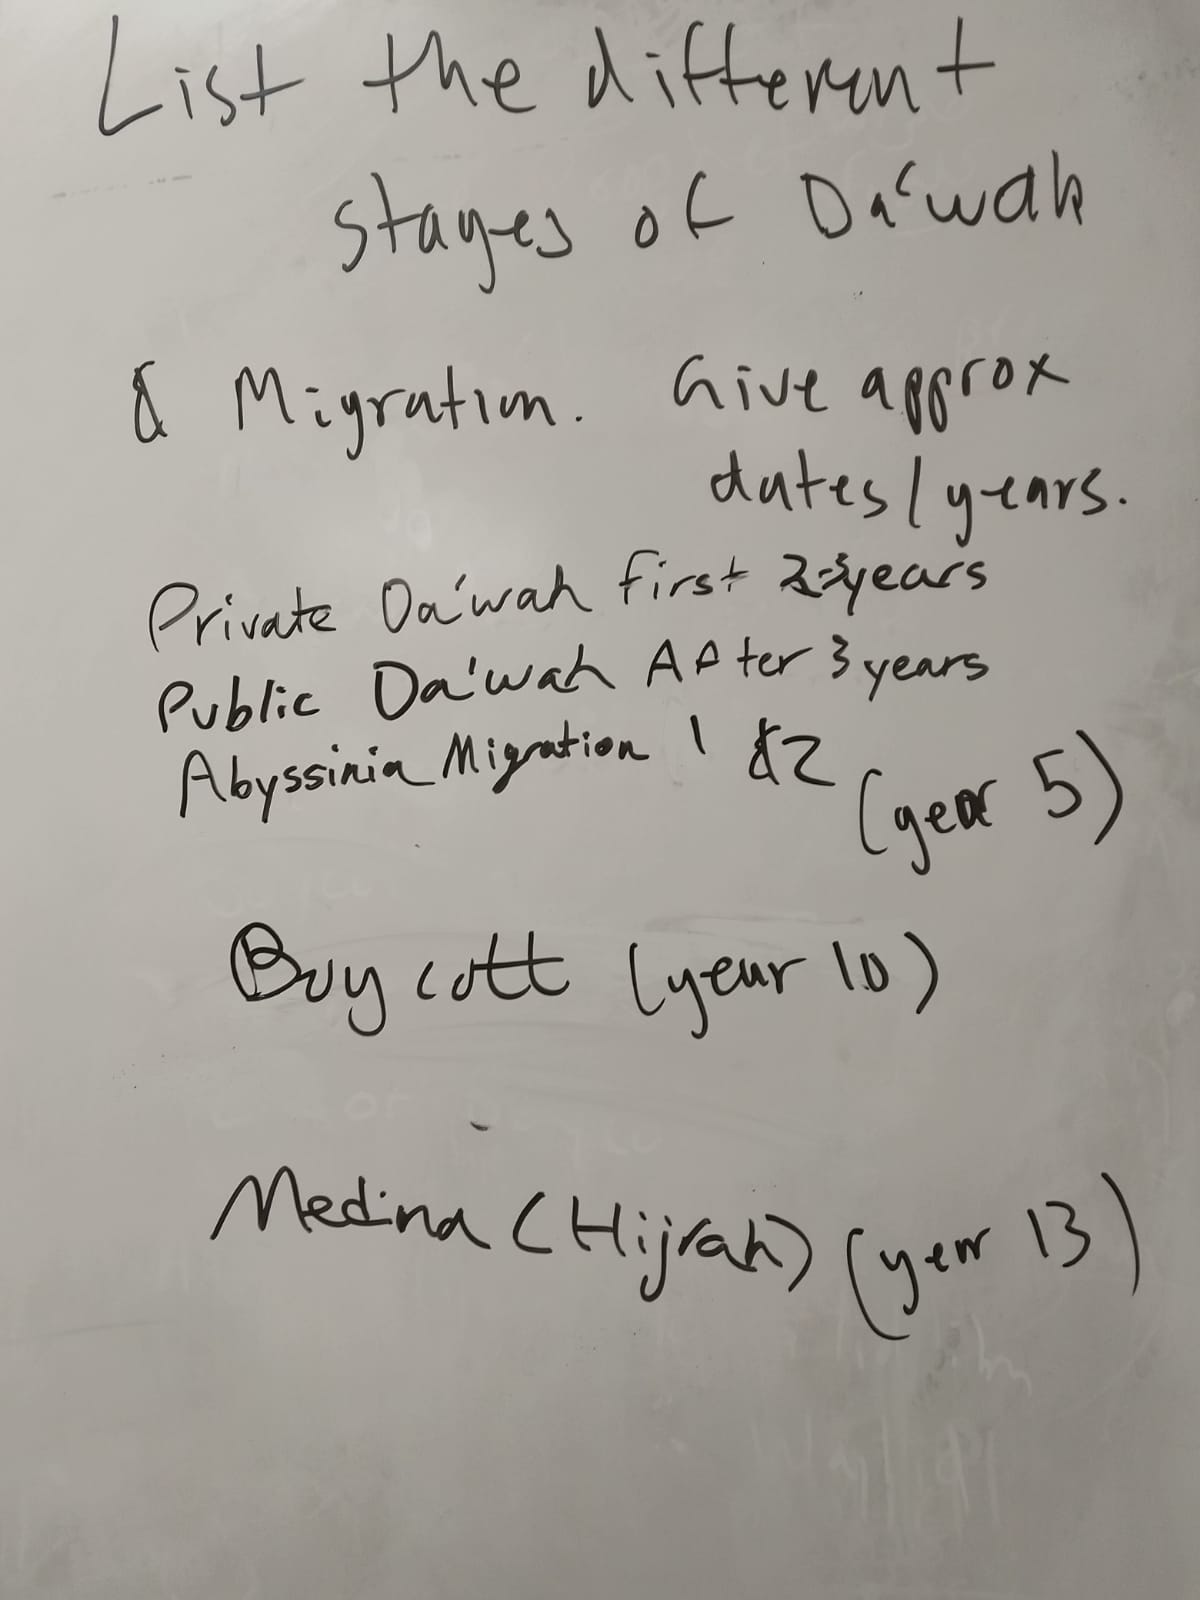 List the different
stages of Da'wah
& Migration. Give approx
dates/years.
Private Da'wah first 2-3years
Public Da'wah After 3 years
Abyssinia Migration 1 &2
(year 5)
Boycott (year 10)
Medina (Hijrah) (year 13)